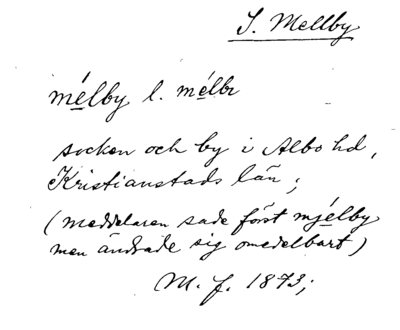 S. Mellby
mélby l. mélbı
socken och by i Albo hd,
Kristianstads län;
(meddelaren sade först mjélby
men ändrade sig omedelbart)
M. f. 1873;